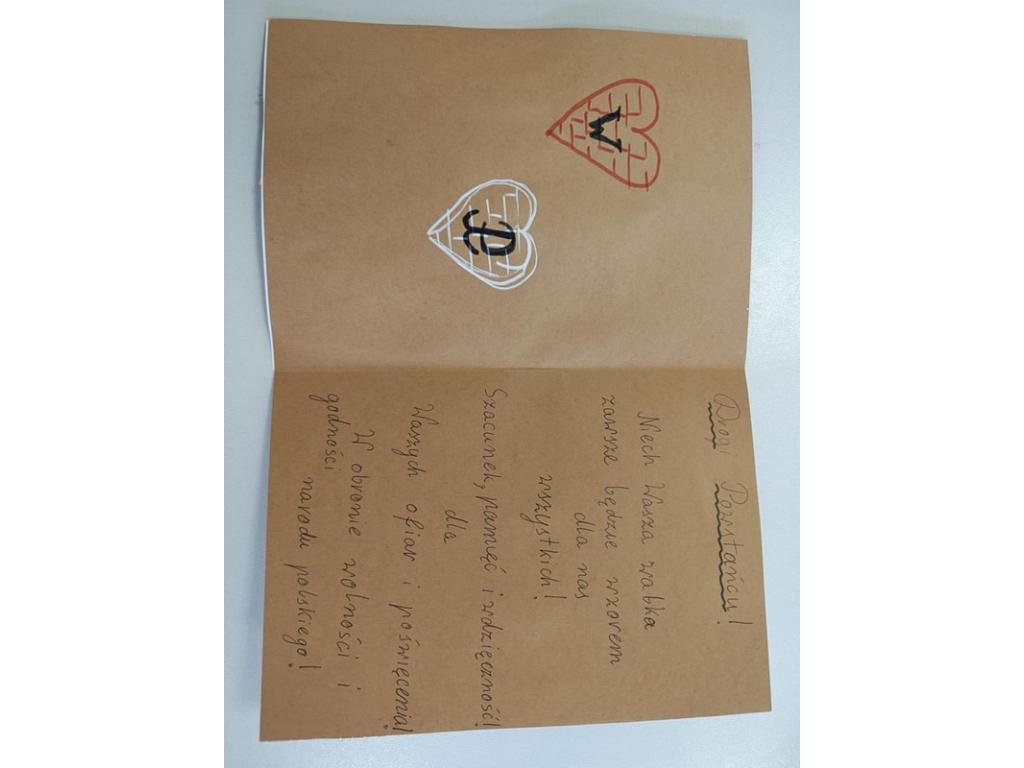 W
P
Drogi Powstańcu!
Niech Wasza walka
zawsze będzie wzorem
dla nas
wszystkich!
Szacunek, pamięć i wdzięczność!
dla
Waszych ofiar i poświęcenia!
W obronie wolności i
godności
narodu polskiego!